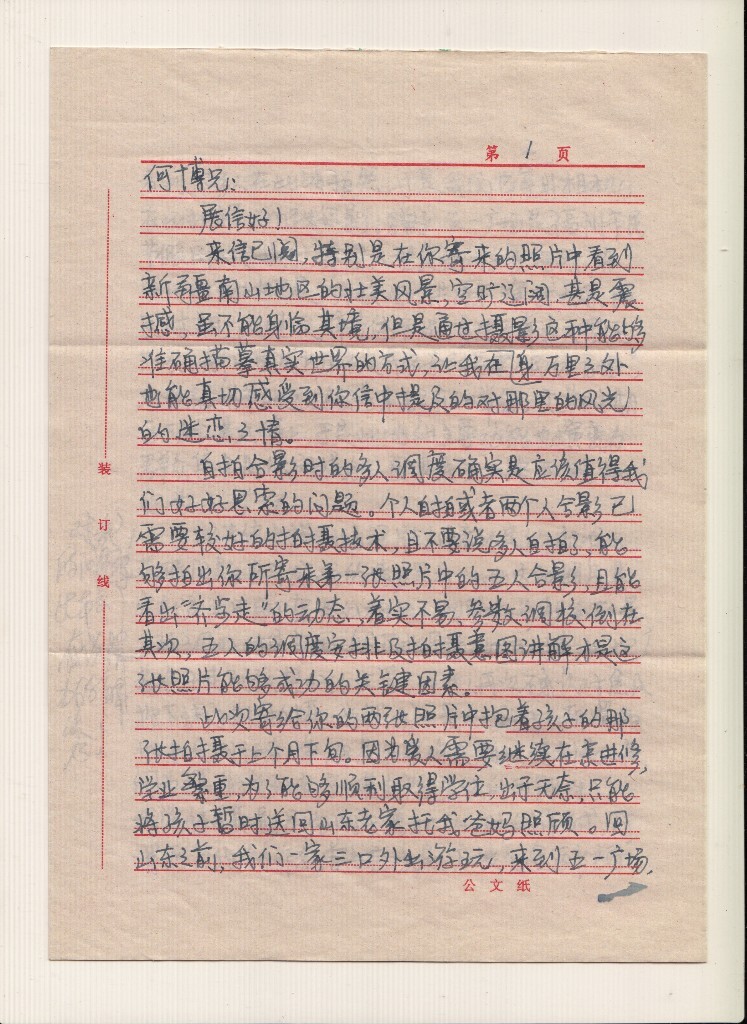 第 1 页
何博兄：
展信好！
来信已阅，特别是在你寄来的照片中看到
新疆南山地区的壮美风景，空旷辽阔，甚是震
撼，虽不能身临其境，但是通过摄影这种能够
准确描摹真实世界的方式，让我在身万里之外
也能真切感受到你信中提及的对那里的风光
的迷恋之情。
自拍合影时的多人调度确实是应该值得我
们好好思索的问题。个人自拍或者两个人合影已
需要较好的拍摄技术，且不要说多人自拍了，能
够拍出你所寄来第一张照片中的五人合影，且能
看出“齐步走”的动态，着实不易，参数调校倒在
其次，五人的调度安排及拍摄意图讲解才是这
张照片能够成功的关键因素。
此次寄给你的两张照片中抱着孩子的那
张拍摄于上个月下旬。因为爱人需要继续在京进修，
学业繁重，为了能够顺利取得学位，出于无奈，只能
将孩子暂时送回山东老家托我爸妈照顾。回
山东之前，我们一家三口外出游玩，来到五一广场，
公文纸
装
订
线